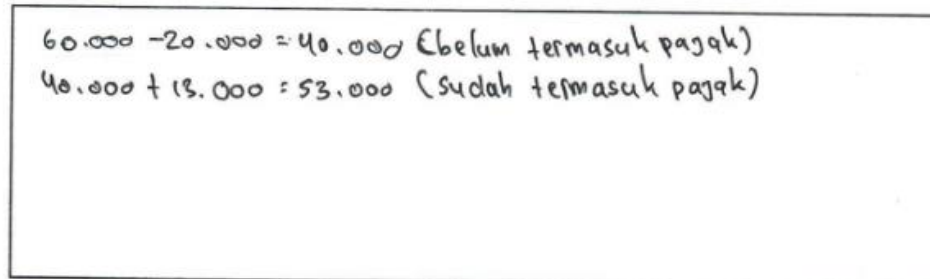 60.000 - 20.000 = 40.000 (belum termasuk pajak)
40.000 + 13.000 = 53.000 (sudah termasuk pajak)